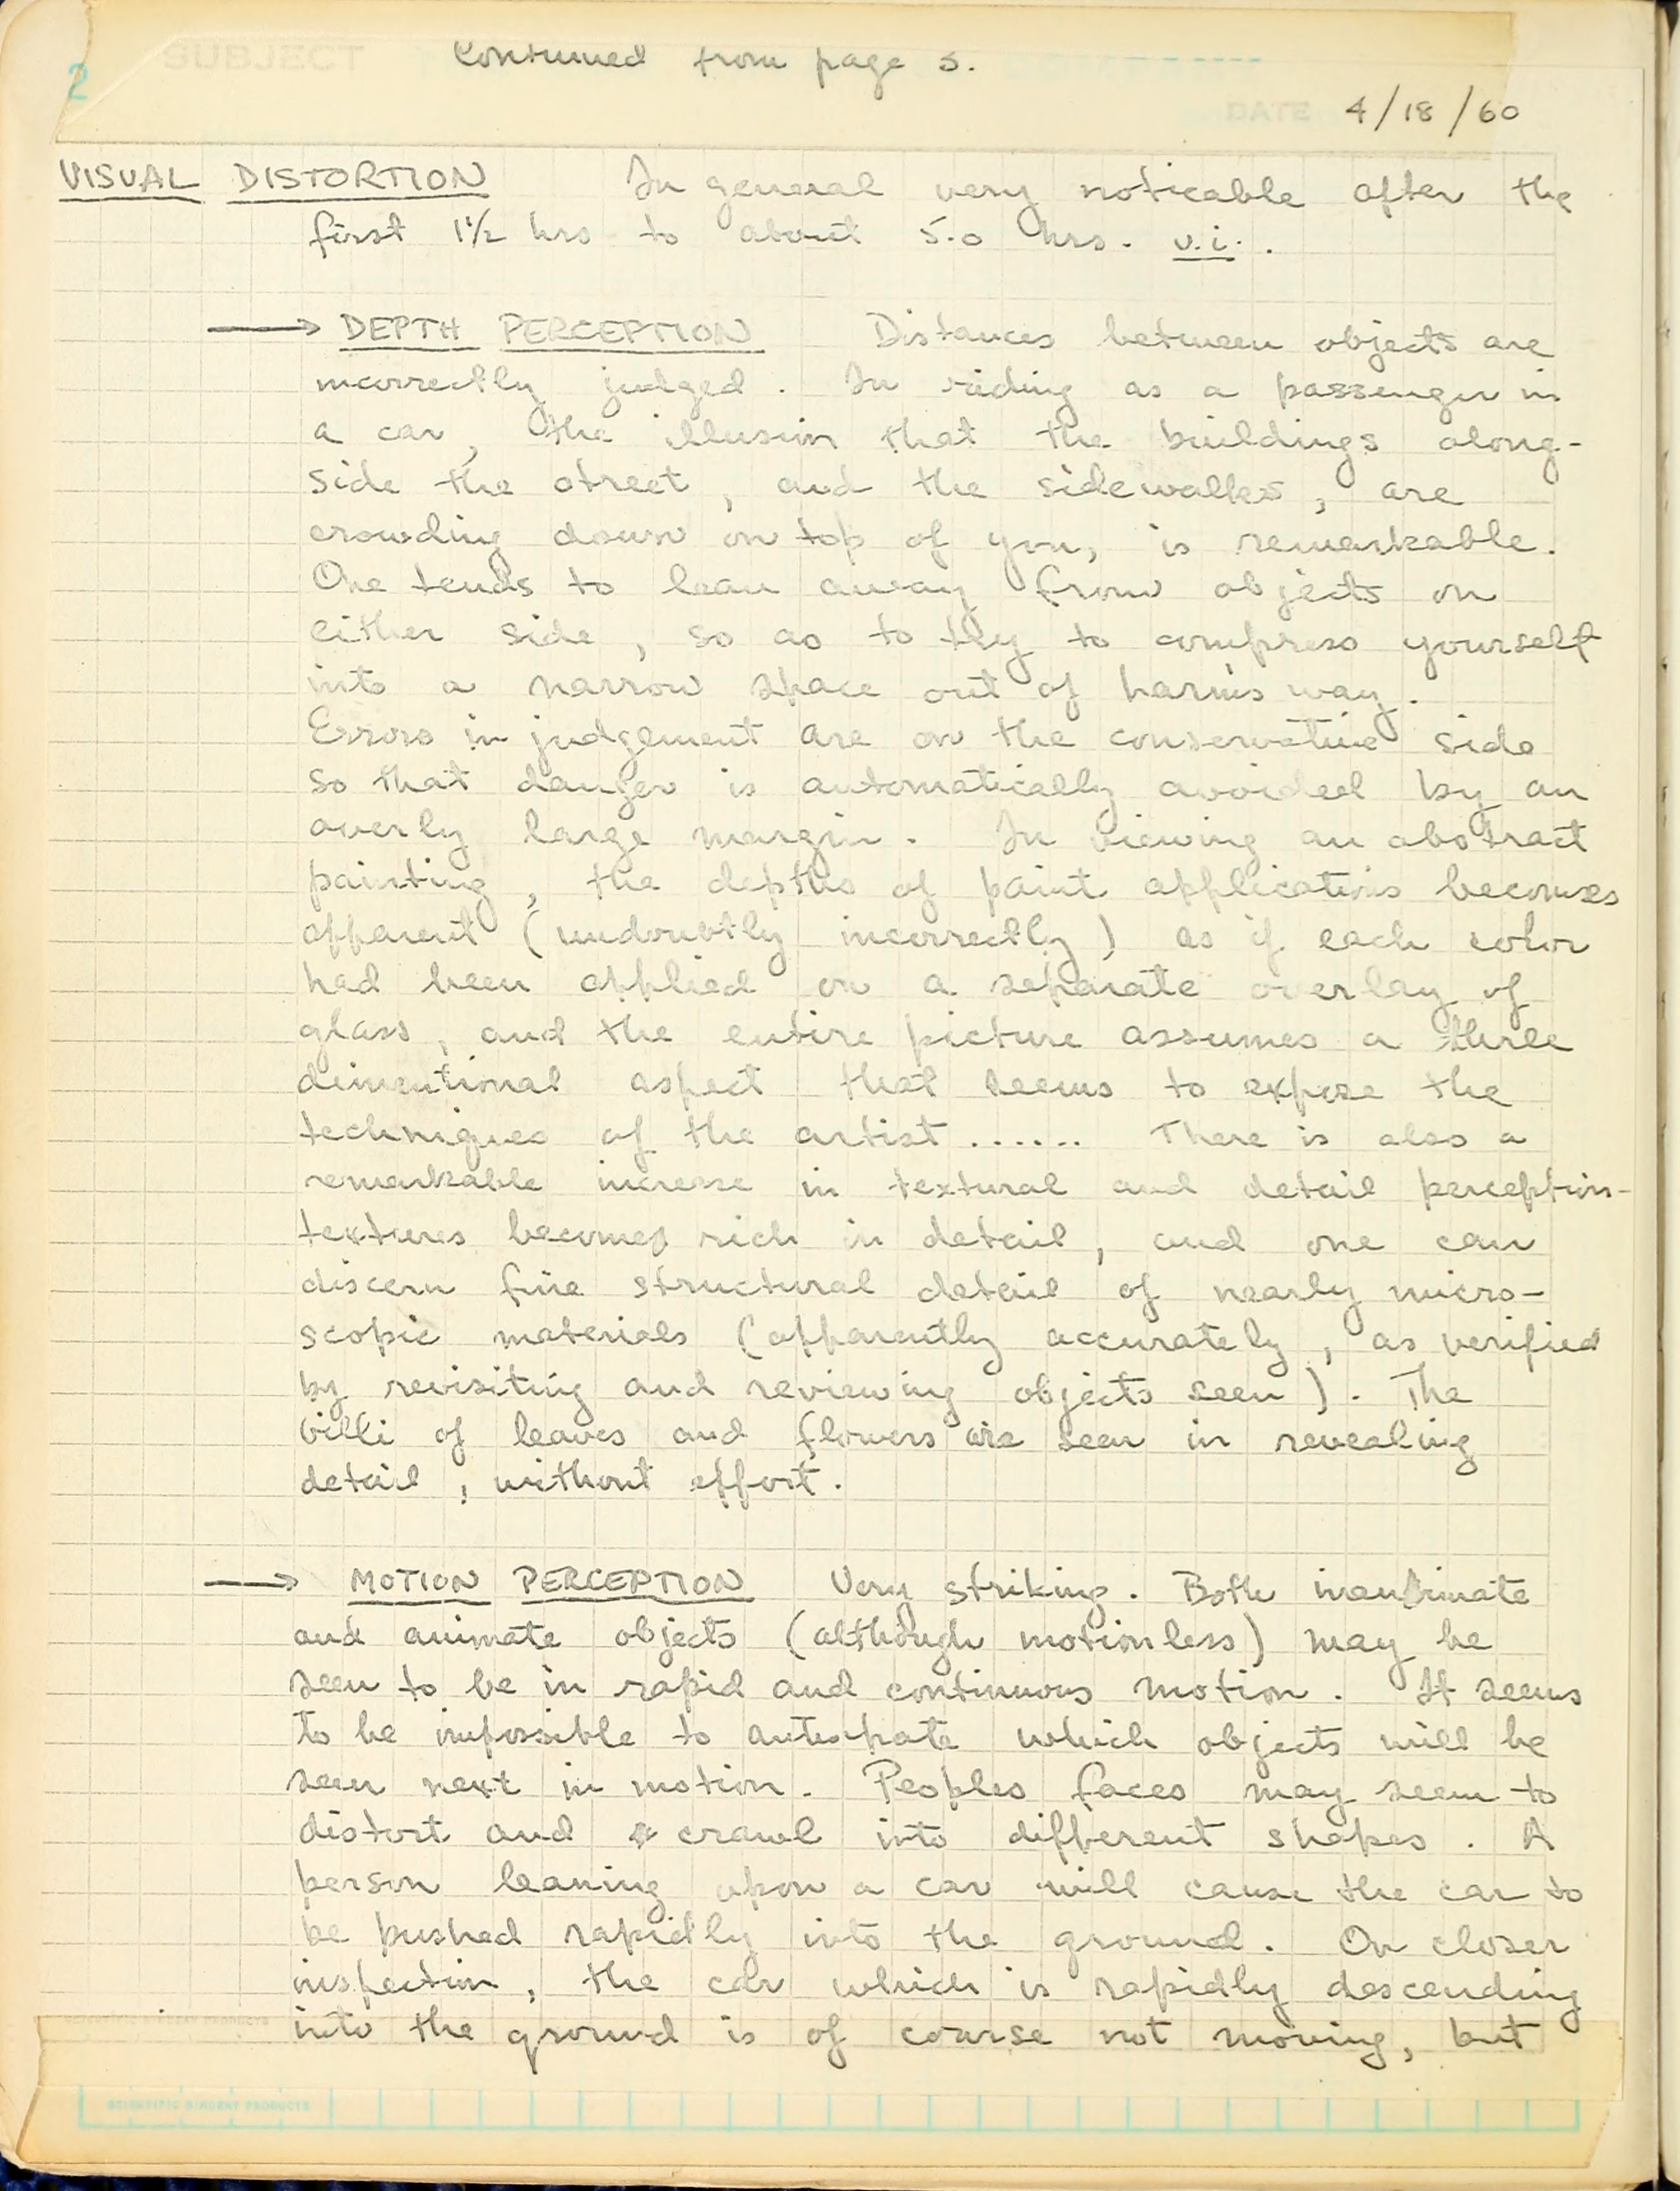 SUBJECT Continued from page 5.
2
DATE 4/18/60
VISUAL DISTORTION In general very noticable after the
first 1½ hrs to about 5.0 hrs. v.i..
→ DEPTH PERCEPTION Distances between objects are
incorrectly judged. In riding as a passenger in
a car, the illusion that the buildings along-
side the street, and the sidewalks, are
crowding down on top of you, is remarkable.
One tends to lean away from objects on
either side, so as to try to compress yourself
into a narrow space out of harm's way.
Errors in judgement are on the conservative side
so that danger is automatically avoided by an
overly large margin. In viewing an abstract
painting, the depths of paint applications becomes
apparent (undoubtly incorrectly) as if each color
had been applied on a separate overlay of
glass, and the entire picture assumes a three
dimentional aspect that seems to expose the
techniques of the artist ...... There is also a
remarkable increase in textural and detail perception-
textures become rich in detail, and one can
discern fine structural detail of nearly micro-
scopic materials (apparently accurately, as verified
by revisiting and reviewing objects seen). The
villi of leaves and flowers are seen in revealing
detail, without effort.
→ MOTION PERCEPTION Very striking. Both inanimate
and animate objects (although motionless) may be
seen to be in rapid and continuous motion. It seems
to be impossible to antecipate which objects will be
seen next in motion. Peoples faces may seem to
distort and crawl into different shapes. A
person leaning upon a car will cause the car to
be pushed rapidly into the ground. On closer
inspection, the car which is rapidly descending
into the ground is of coarse not moving, but
SCIENTIFIC BINDERY PRODUCTS